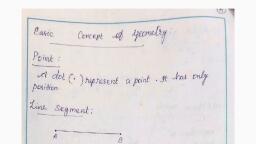 Basic Concept of Geometry:
Point:
A dot (·) represent a point. It has only
position
Line Segment:
A B